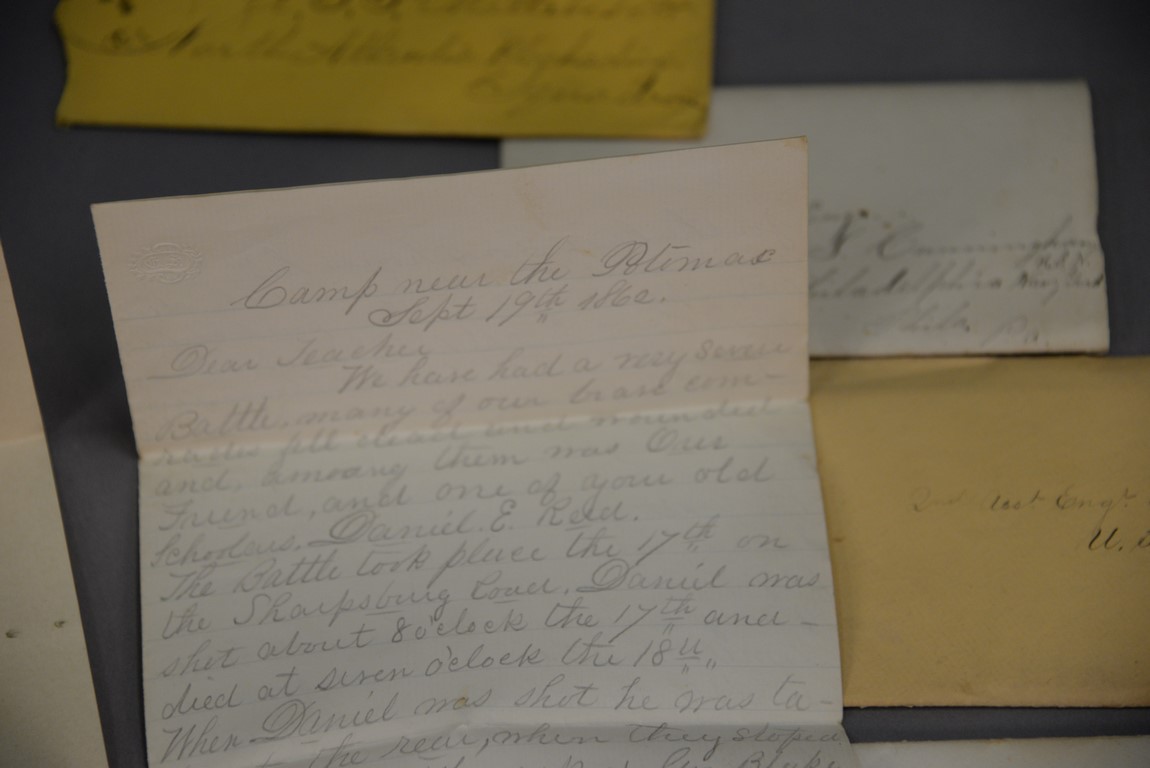 North
Cunningham
Philadelphia
Phila Pa.
Camp near the Potomac
Sept 19th 1862.
Dear Teacher
We have had a very severe
Battle, many of our brave com-
rades fell dead and wounded
and, amoung them was Our
Friend, and one of your old
Schoolars. Daniel. E. Reed.
The Battle took place the 17th on
the Sharpsburg Road. Daniel was
shot about 8 o'clock the 17th and -
died at seven o'clock the 18th
When Daniel was shot he was ta-
the rear, when they stoped
Asst Engr
U.